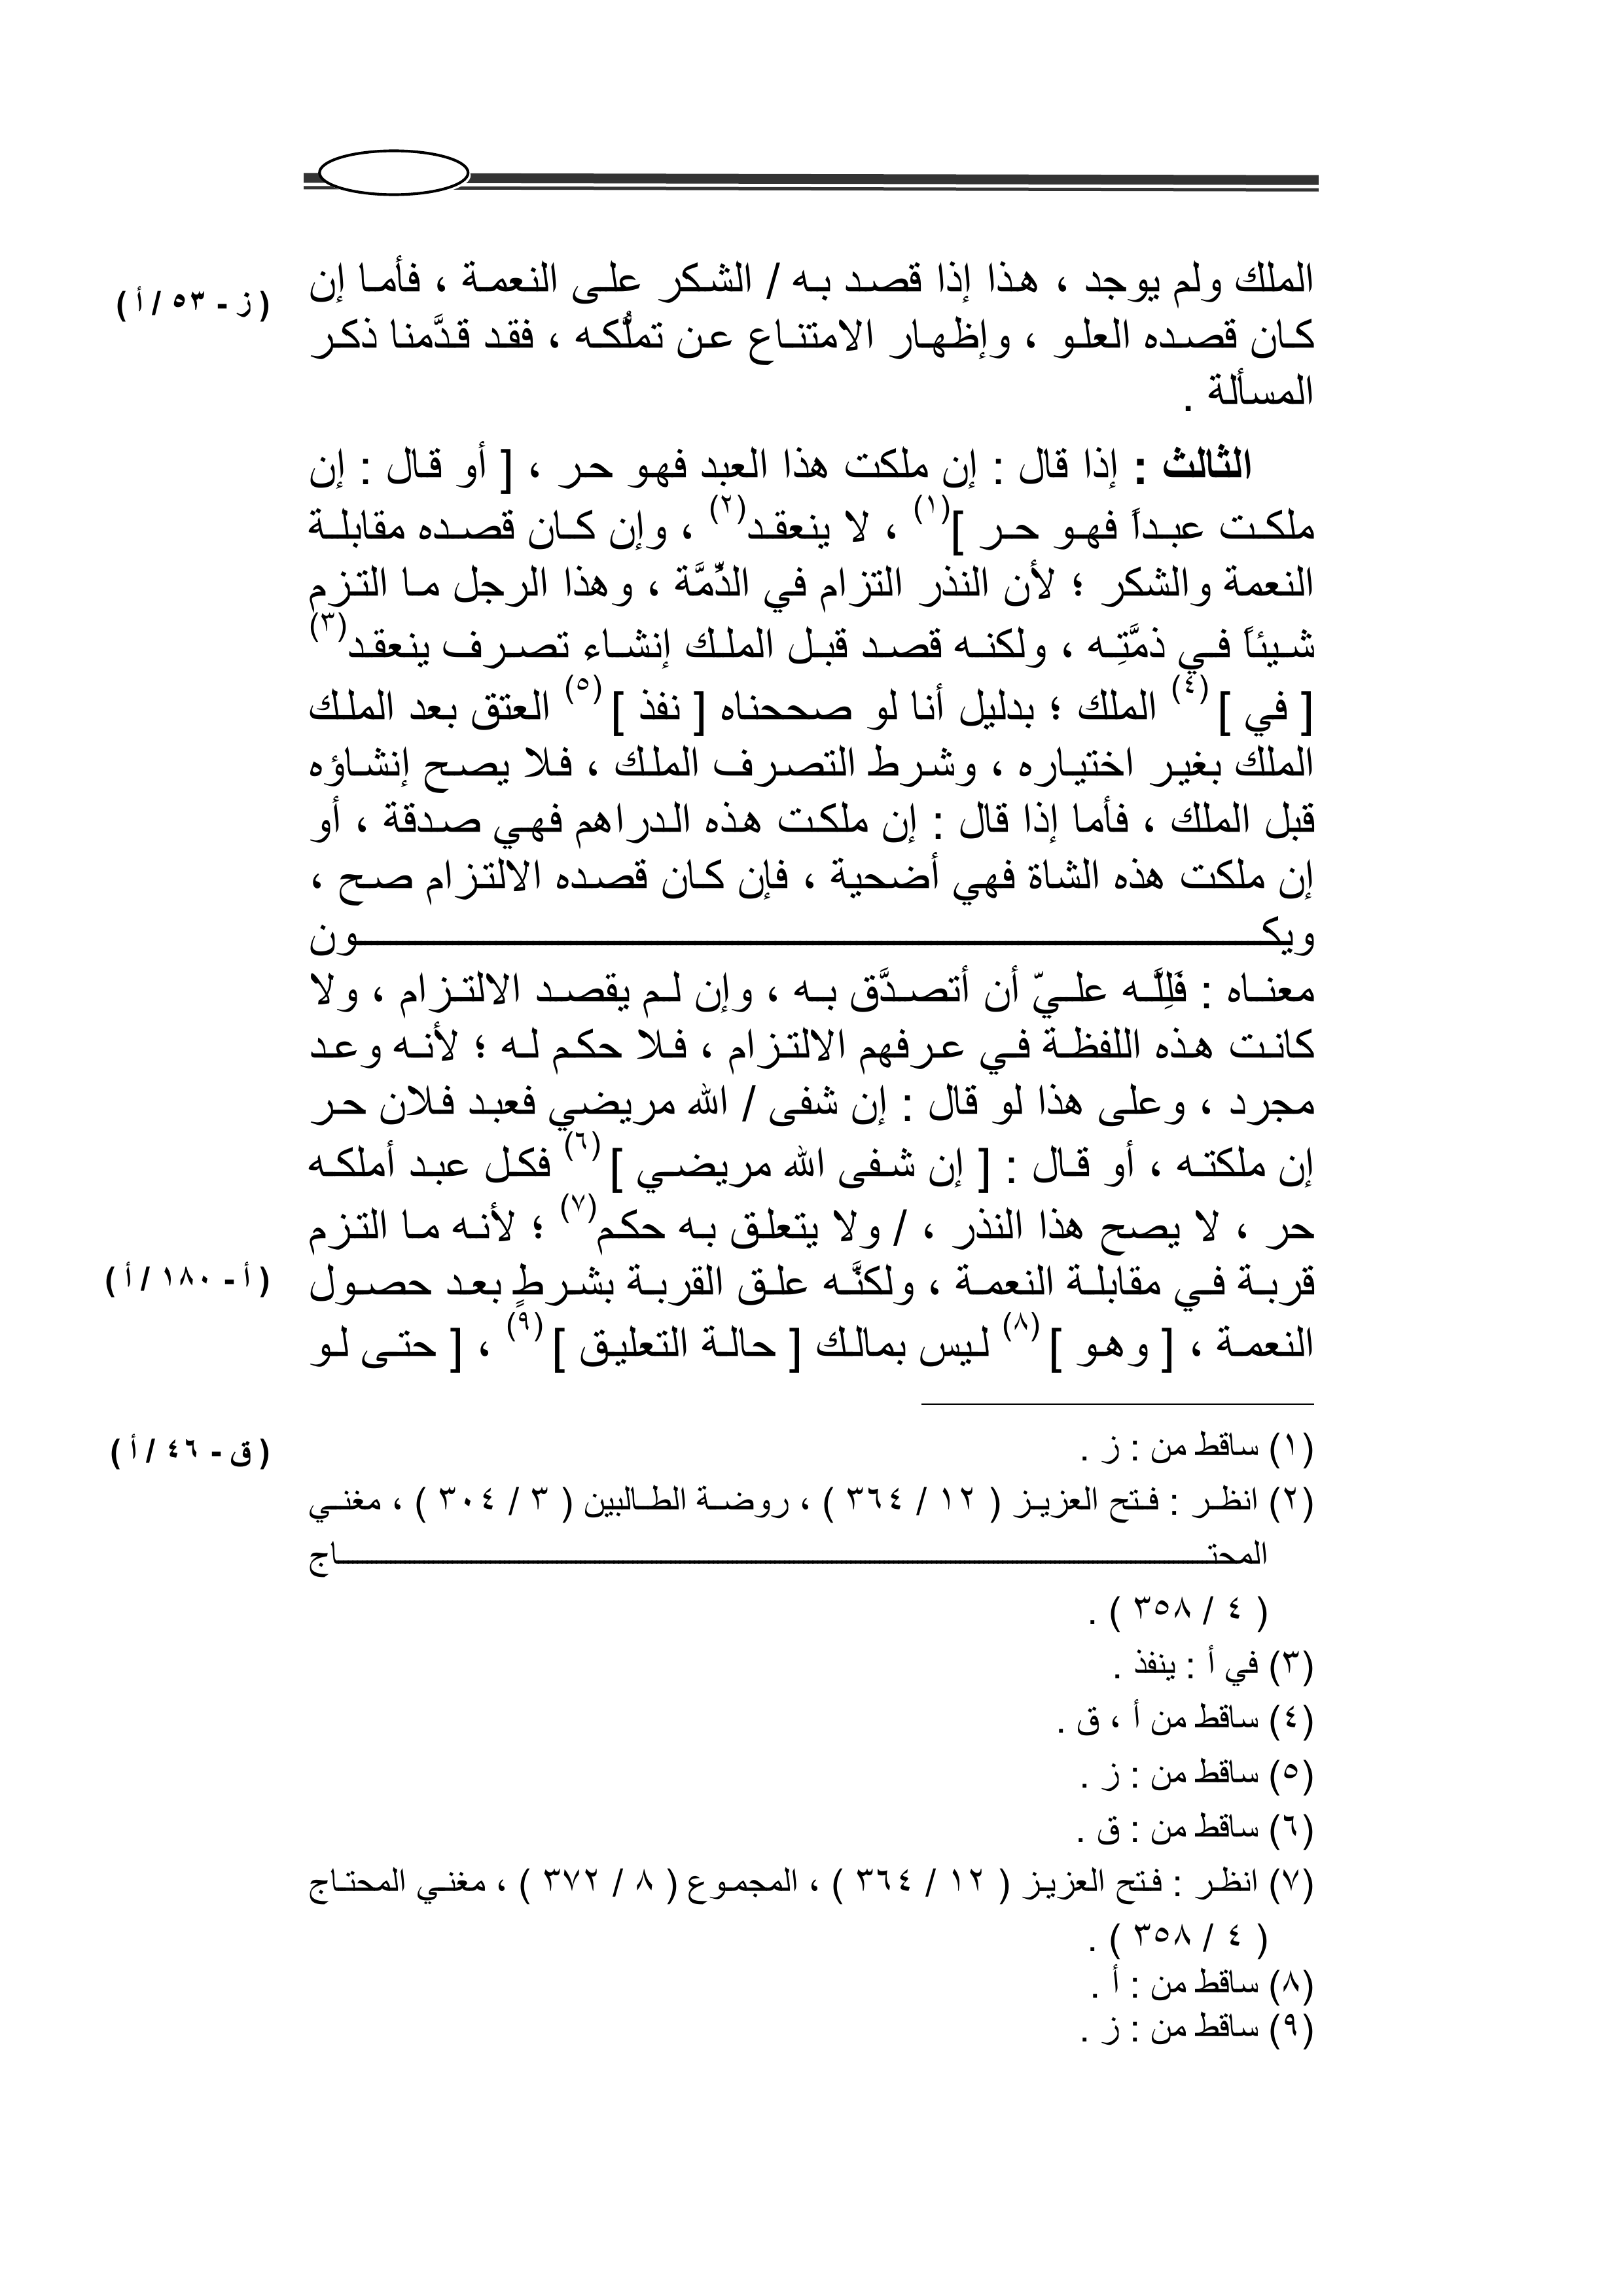 الملك ولم يوجد ، هذا إذا قصد به / الشكر على النعمة ، فأما إن
( ز - ٥٣ / أ )
كان قصده العلو ، وإظهار الامتناع عن تملُّكه ، فقد قدَّمنا ذكر
المسألة .
الثالث : إذا قال : إن ملكت هذا العبد فهو حر ، [ أو قال : إن
ملكت عبداً فهو حر ](١) ، لا ينعقد(٢) ، وإن كان قصده مقابلة
النعمة والشكر ؛ لأن النذر التزام في الذِّمَّة ، وهذا الرجل ما التزم
شيئاً في ذمَّتِه ، ولكنه قصد قبل الملك إنشاء تصرف ينعقد(٣)
[ في ](٤) الملك ؛ بدليل أنا لو صححناه [ نفذ ](٥) العتق بعد الملك
الملك بغير اختياره ، وشرط التصرف الملك ، فلا يصح إنشاؤه
قبل الملك ، فأما إذا قال : إن ملكت هذه الدراهم فهي صدقة ، أو
إن ملكت هذه الشاة فهي أضحية ، فإن كان قصده الالتزام صح ،
ويكون
معناه : فَلِلَّه عليّ أن أتصدَّق به ، وإن لم يقصد الالتزام ، ولا
كانت هذه اللفظة في عرفهم الالتزام ، فلا حكم له ؛ لأنه وعد
مجرد ، وعلى هذا لو قال : إن شفى / الله مريضي فعبد فلان حر
إن ملكته ، أو قال : [ إن شفى الله مريضي ](٦) فكل عبد أملكه
حر ، لا يصح هذا النذر ، / ولا يتعلق به حكم(٧) ؛ لأنه ما التزم
قربة في مقابلة النعمة ، ولكنَّه علق القربة بشرطٍ بعد حصول
( أ - ١٨٠ / أ )
النعمة ، [ وهو ](٨) ليس بمالك [ حالة التعليق ](٩) ، [ حتى لو
( ق - ٤٦ / أ )
(١) ساقط من : ز .
(٢) انظر : فتح العزيز ( ١٢ / ٣٦٤ ) ، روضة الطالبين ( ٣ / ٣٠٤ ) ، مغني
المحتاج
( ٤ / ٣٥٨ ) .
(٣) في أ : ينفذ .
(٤) ساقط من أ ، ق .
(٥) ساقط من : ز .
(٦) ساقط من : ق .
(٧) انظر : فتح العزيز ( ١٢ / ٣٦٤ ) ، المجموع ( ٨ / ٣٧٢ ) ، مغني المحتاج
( ٤ / ٣٥٨ ) .
(٨) ساقط من : أ .
(٩) ساقط من : ز .